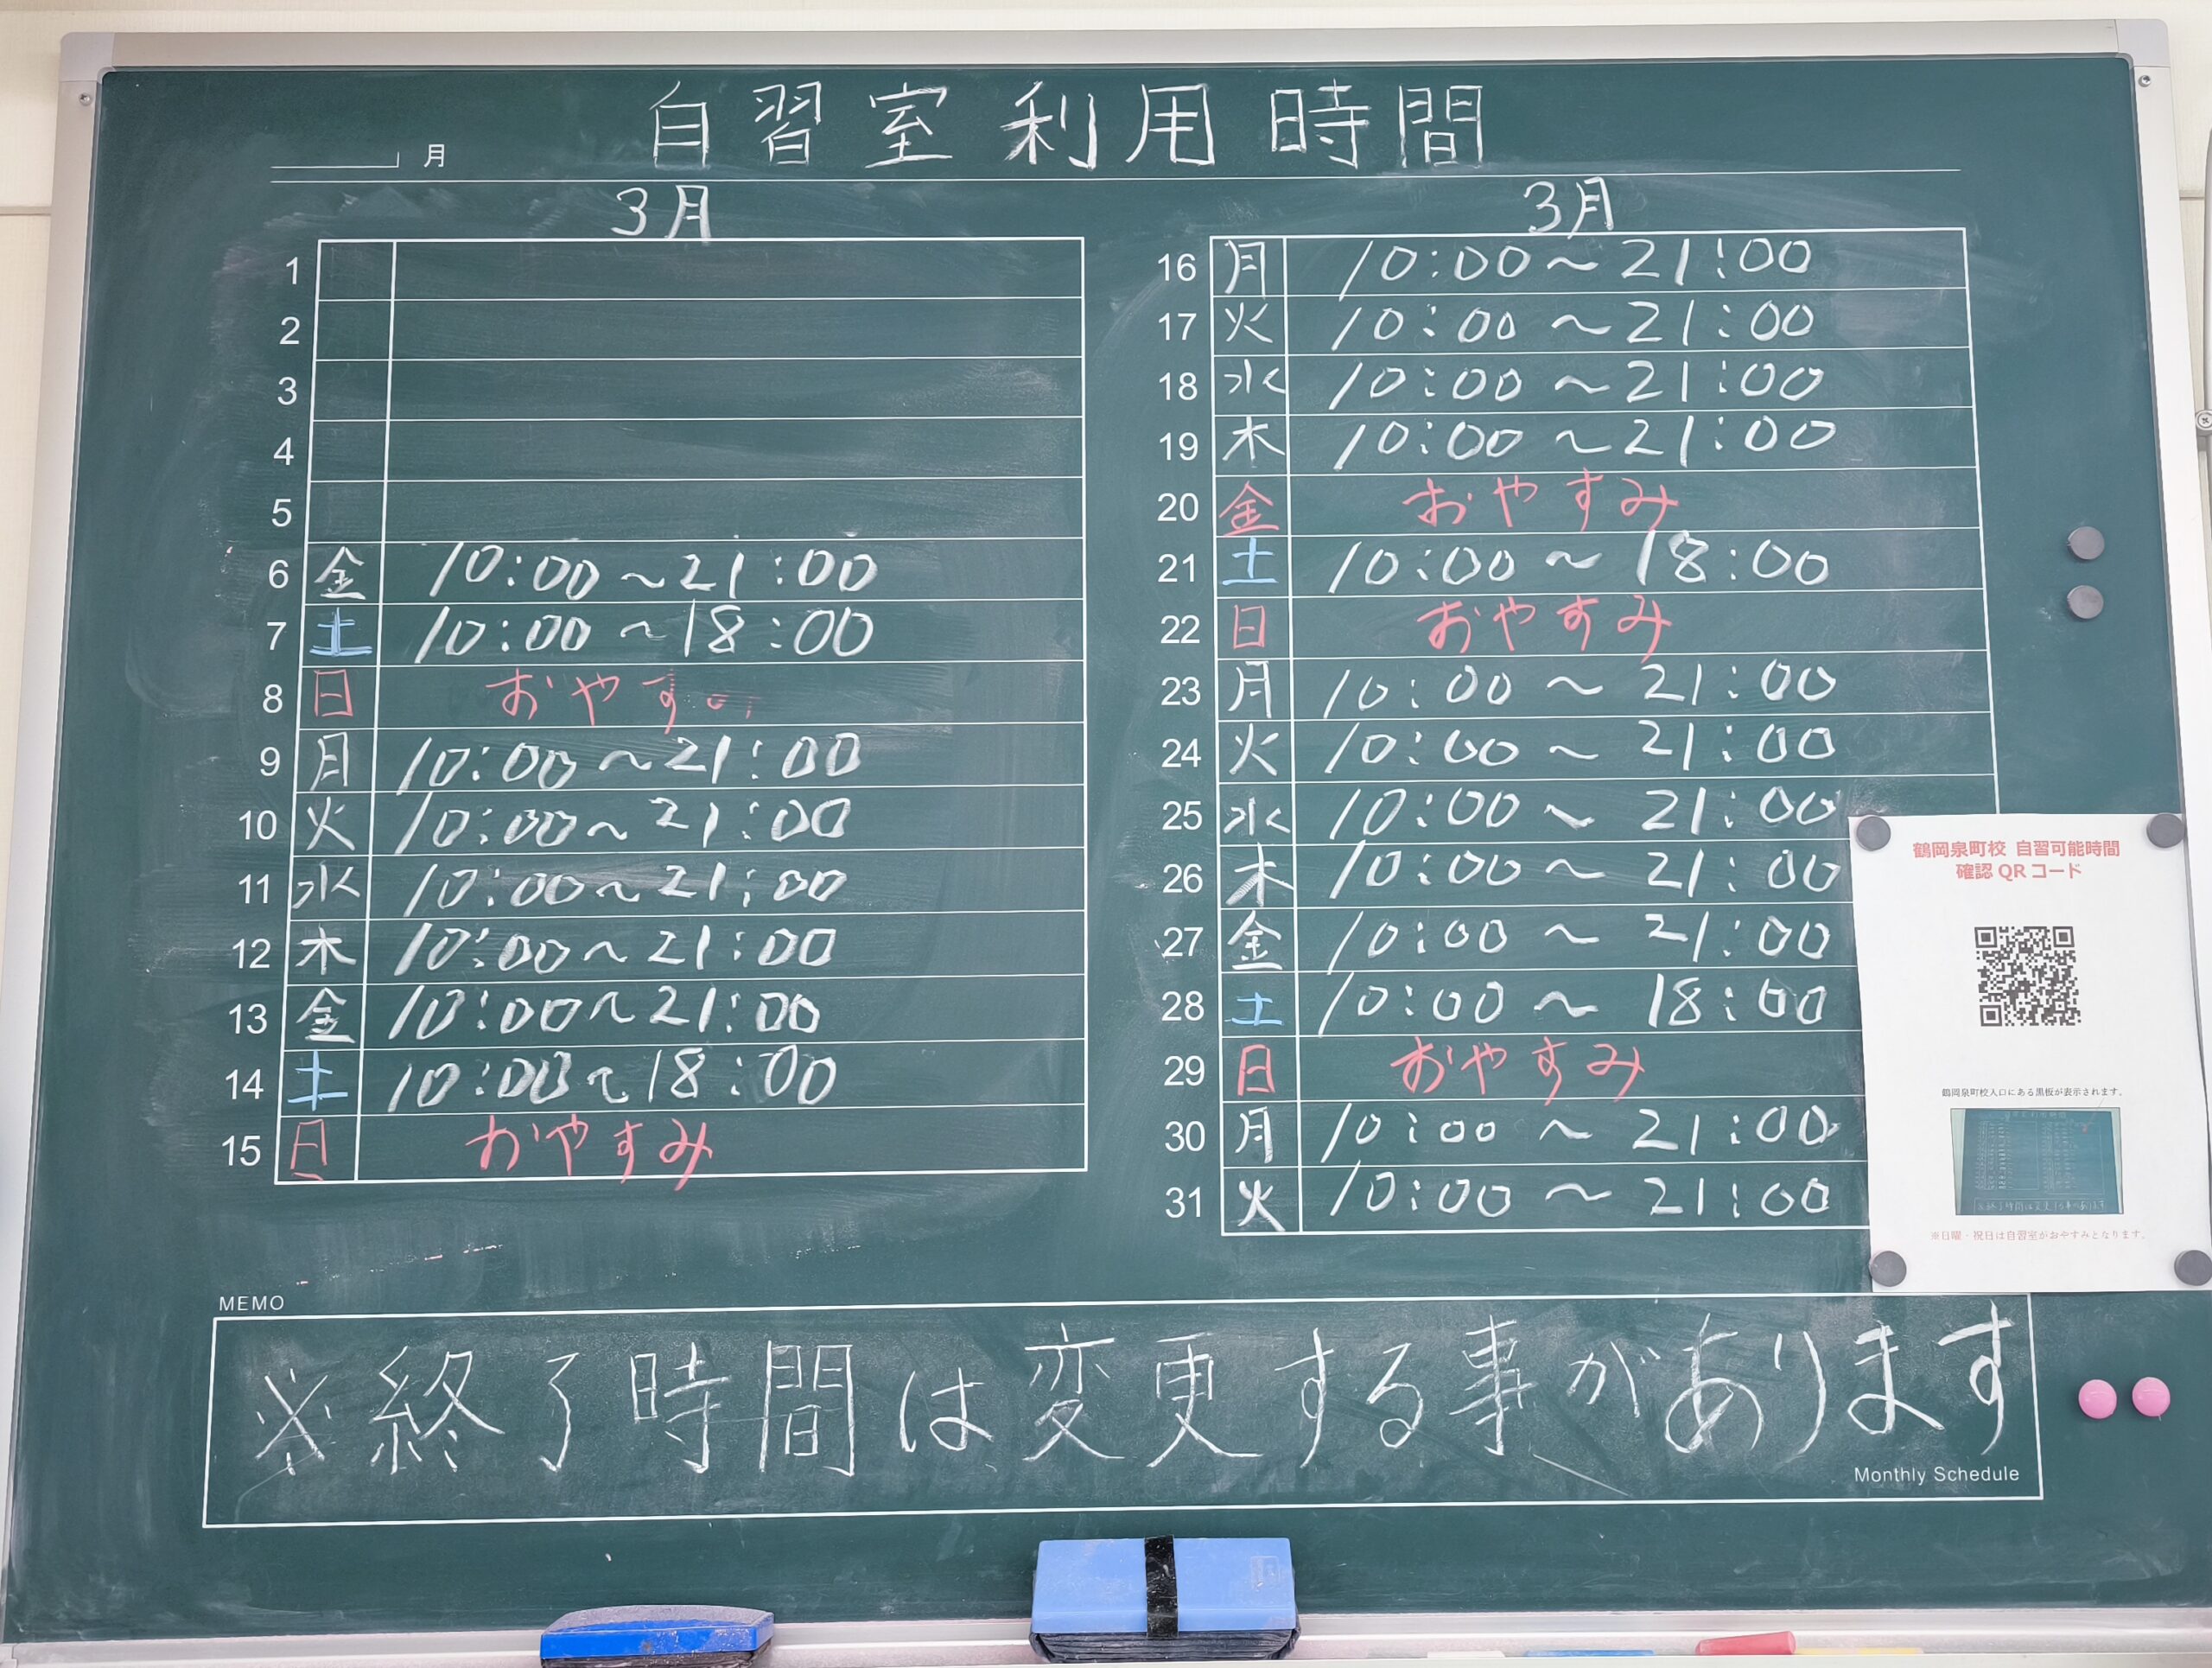 自習室利用時間
月
3月
1
2
3
4
5
6 金 10:00~21:00
7 土 10:00~18:00
8 日 おやす
9 月 10:00~21:00
10 火 10:00~21:00
11 水 10:00~21:00
12 木 10:00~21:00
13 金 10:00~21:00
14 土 10:00~18:00
15 日 おやすみ
3月
16 月 10:00~21:00
17 火 10:00~21:00
18 水 10:00~21:00
19 木 10:00~21:00
20 金 おやすみ
21 土 10:00~18:00
22 日 おやすみ
23 月 10:00~21:00
24 火 10:00~21:00
25 水 10:00~21:00
26 木 10:00~21:00
27 金 10:00~21:00
28 土 10:00~18:00
29 日 おやすみ
30 月 10:00~21:00
31 火 10:00~21:00
鶴岡泉町校 自習可能時間
確認QRコード
鶴岡泉町校入口にある黒板が表示されます。
※日曜・祝日は自習室がおやすみとなります。
MEMO
※終了時間は変更する事があります
Monthly Schedule